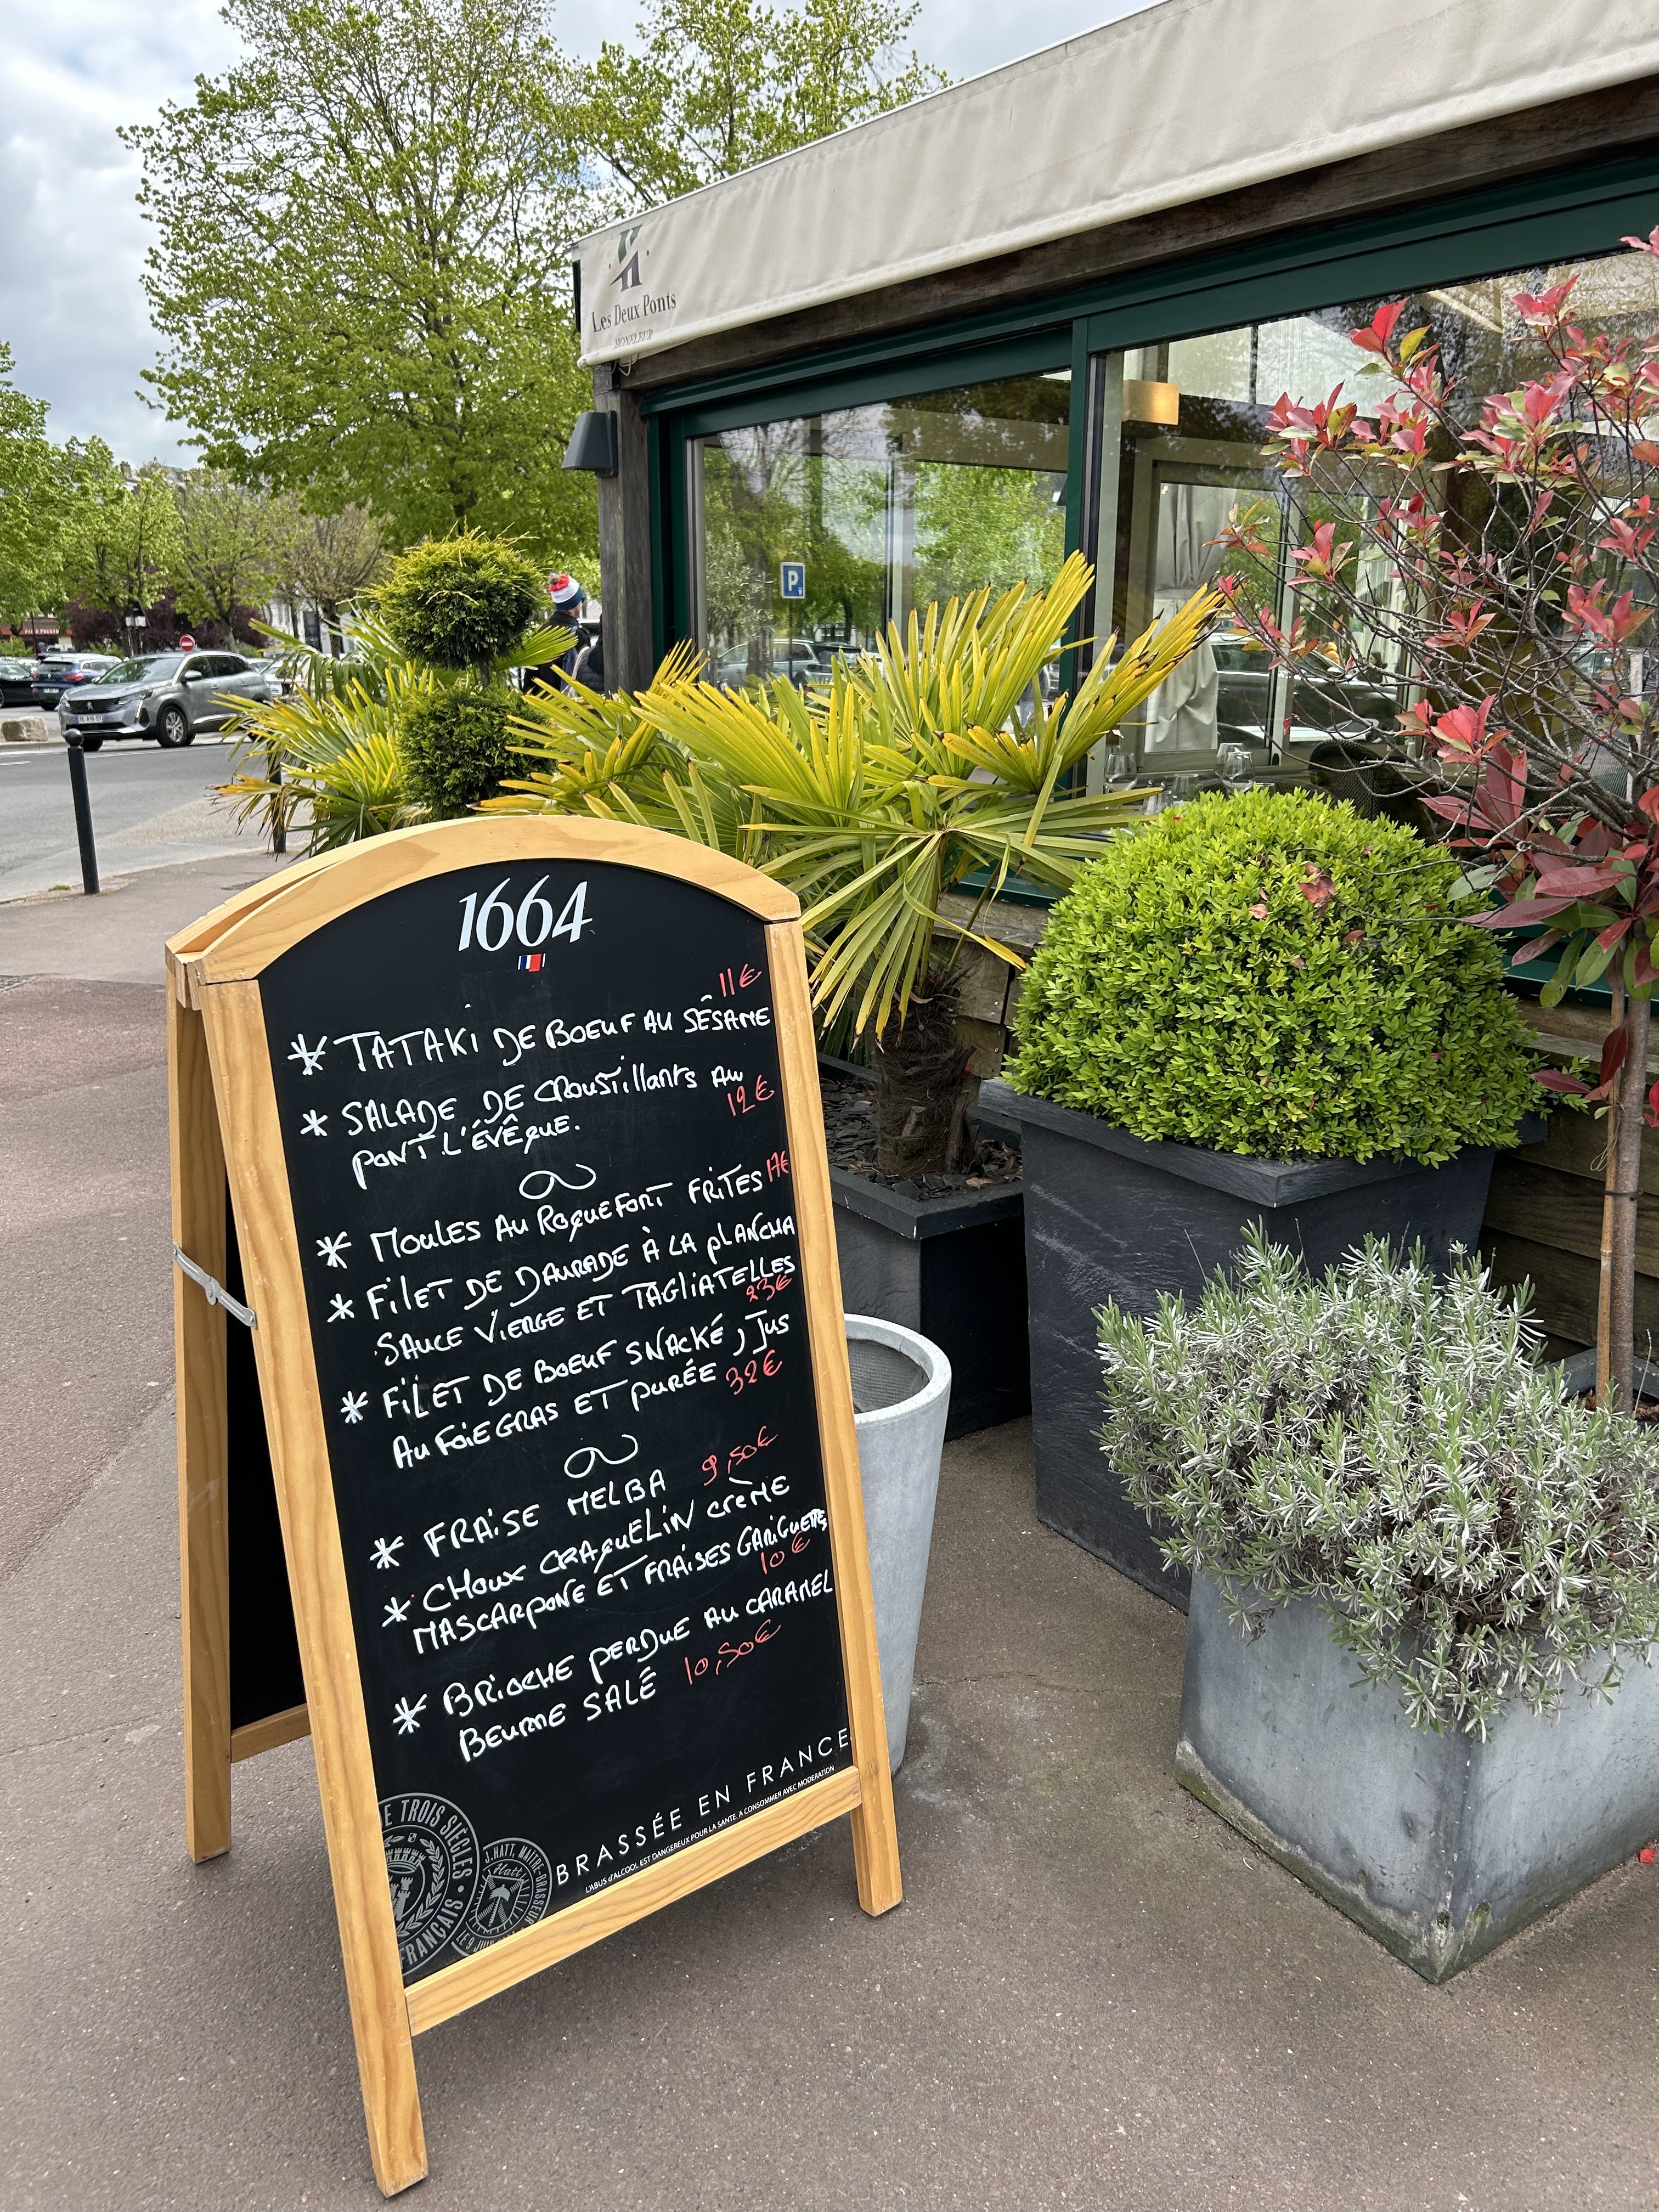 Les Deux Ponts
HONFLEUR
P
1664
11€
* TATAKI DE BOEUF AU SÊSAME
* SALADE DE CROUSTILLANTS AU
PONT L'ÉVÊQUE. 12€
* MOULES AU ROQUEFORT FRITES 17€
* FILET DE DAURADE À LA PLANCHA
SAUCE VIERGE ET TAGLIATELLES
23€
* FILET DE BOEUF SNACKÉ, JUS
AU FOIE GRAS ET PURÉE 32€
* FRAISE MELBA 9,50€
* CHOUX CRAQUELIN CRÈME
MASCARPONE ET FRAISES GARIGUETTES
10€
* BRIOCHE PERDUE AU CARAMEL
BEURRE SALÉ 10,50€
BRASSÉE EN FRANCE
L'ABUS d'ALCOOL EST DANGEREUX POUR LA SANTE. A CONSOMMER AVEC MODERATION
E TROIS SIÈCLES
FRANÇAIS
J.HATT, MAITRE-BRASSEUR
Hatt
LE 9 JUIN